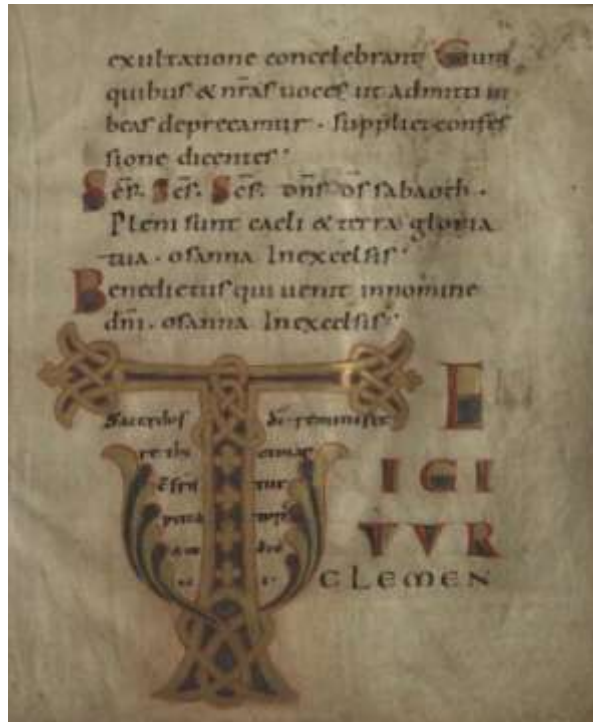 exultatione concelebrant Cum
quibus & nr̄as uoces ut admitti iu
beas deprecamur · supplici confes
sione dicentes ·
Sc̄s. Sc̄s. Sc̄s. dn̄s d̄s sabaoth ·
Pleni sunt caeli & terra gloria
tua · osanna In excelsis ·
Benedictus qui uenit in nomine
dn̄i · osanna In excelsis ·
T E
Sacerdos
IGI
TUR
CLEMEN